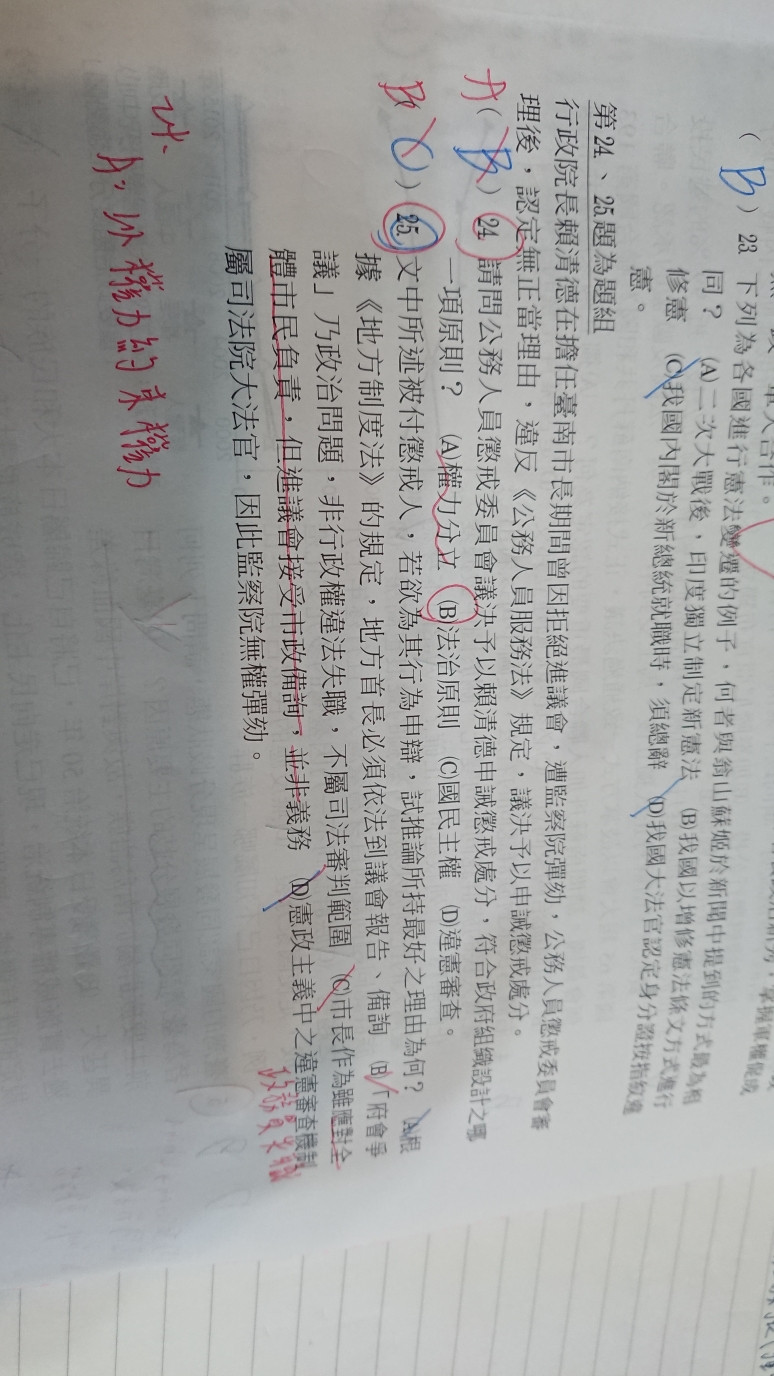 (B) 23. 下列為各國進行憲法變遷的例子，何者與翁山蘇姬於新聞中提到的方式最為相
同？ (A)二次大戰後，印度獨立制定新憲法 (B)我國以增修憲法條文方式進行
修憲 (C)我國內閣於新總統就職時，須總辭 (D)我國大法官認定身分證按指紋違
憲。
第24、25題為題組
行政院長賴清德在擔任臺南市長期間曾因拒絕進議會，遭監察院彈劾，公務人員懲戒委員會審
理後，認定無正當理由，違反《公務人員服務法》規定，議決予以申誡懲戒處分。
A (B) 24. 請問公務人員懲戒委員會議決予以賴清德申誡懲戒處分，符合政府組織設計之哪
一項原則？ (A)權力分立 (B)法治原則 (C)國民主權 (D)違憲審查。
B (C) 25. 文中所述被付懲戒人，若欲為其行為申辯，試推論所持最好之理由為何？ (A)根
據《地方制度法》的規定，地方首長必須依法到議會報告、備詢 (B)「府會爭
議」乃政治問題，非行政權違法失職，不屬司法審判範圍 (C)市長作為雖應對全
體市民負責，但進議會接受市政備詢，並非義務 (D)憲政主義中之違憲審查機制
屬司法院大法官，因此監察院無權彈劾。
24、
A，以權力約束權力